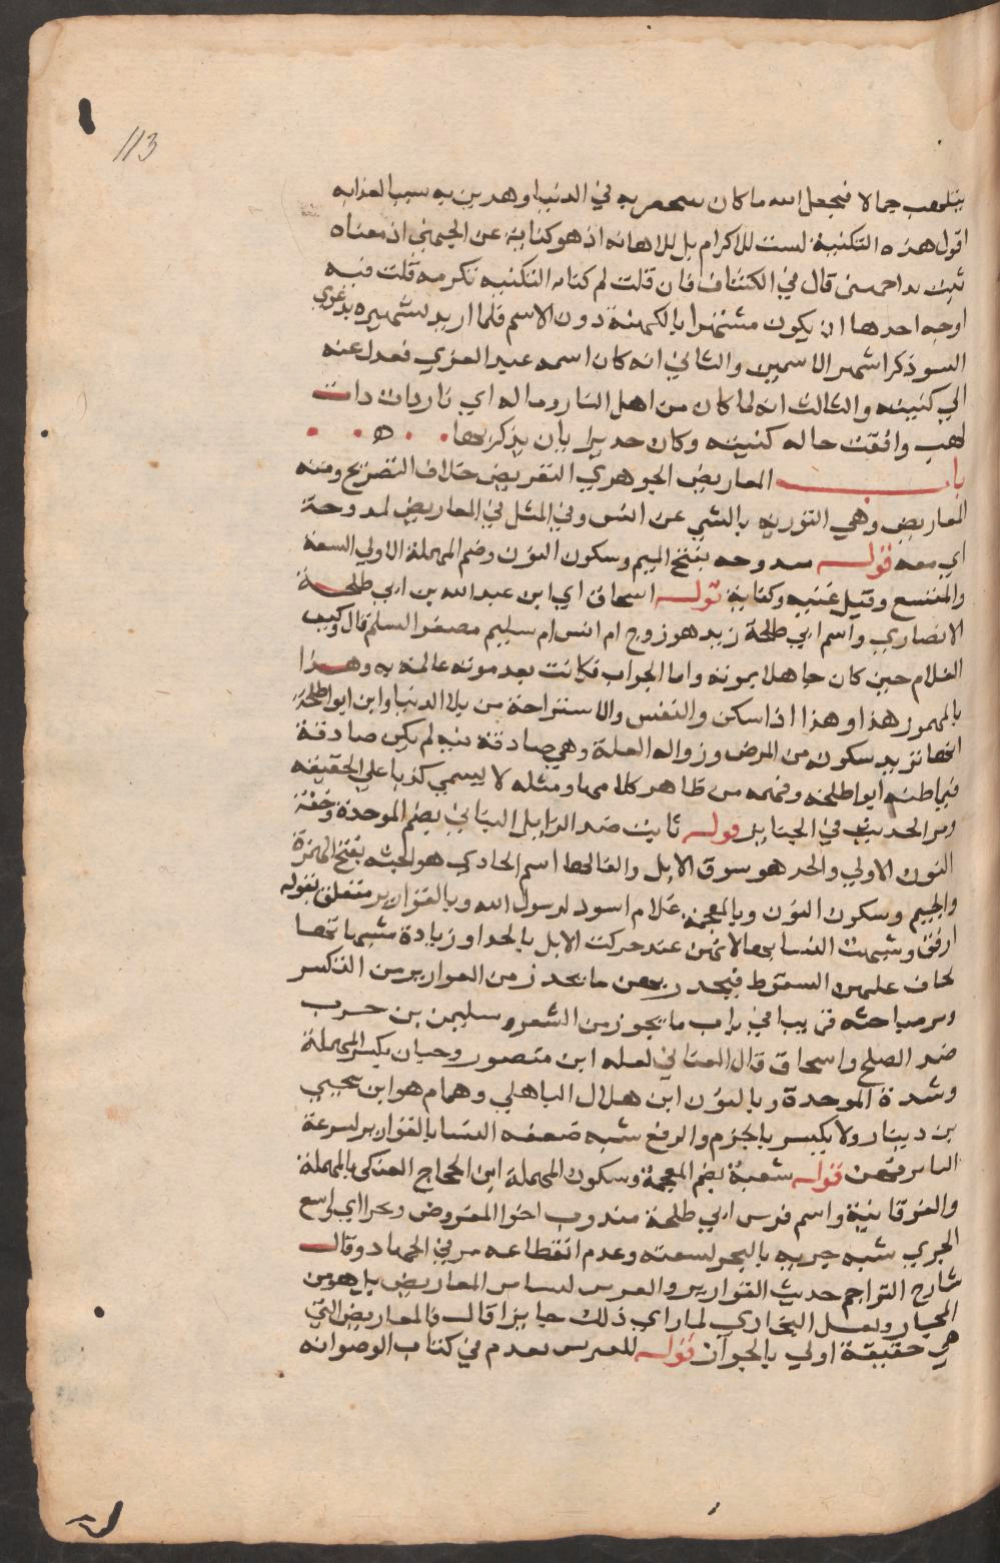 113
بتلهب جمالا فجعل الله ما كان سحعر به في الدنيا وهدين به سببا لعذابه
اقول هذه التكنية ليست للاكرام بل للاهانة اذ هو كناية عن الجهني اذ معناه
تبت يدا جهنمي قال في الكشاف فان قلت لم كناه التكنيه تكرمه قلت فيه
اوجه احدها ان يكون مشتهرا بالكنية دون الاسم فلما اريد تشهيره بدعوي
السو ذكر اشهر الاسمين والثاني انه كان اسمه عبد العزي فعدل عنه
الي كنيته والثالث انه لما كان من اهل النار وماله اي نار ذات ذات
لهب وافقت حاله كنيته وكان جديرا بان يذكر بها ه
باب المعاريض الجوهري التعريض خلاف التصريح ومنه
المعاريض وهي التورية بالشي عن الشي وفي المثل في المعاريض لمدوحة
اي سعه قوله مندوحه بفتح الميم وسكون النون وضم المهملة الاولي السعة
والمتسع وقيل غنيه وكفاية قوله اسحاق اي ابن عبد الله بن ابي طلحة
الانصاري واسم ابي طلحة زيد هو زوج ام انس ام سليم مصغر السلم قال وكيف
الغلام حين كان جاهلا بموته واما الجواب فكانت بعد موته عالمة به وهدا
بالمهموز هذا وهذا اذا سكن والنفس والاستراحة من بلا الدنيا وابن ابو طلحة
انها تريد سكونه من المرض وزواله العلة وهي صادقة فيه لم يكن صادقة
فيما ظنه ابو طلحة وفهمه من ظاهر كلامها ومثله لا يسمي كذبا علي الحقيقة
ومر الحديث في الجنايز قوله ثابت ضد الزايل البناني بضم الموحدة وخفة
النون الاولي والحد هو سوق الابل والغا لها اسم الحادي هو انجشه بفتح الهمزة
والجيم وسكون النون وبالمعجمة غلام اسود لرسول الله وبالقوارير متعلق بقوله
ارفق وشبهت النسا بها لانهن عند حركت الابل بالحدا وزيادة مشيها بها
يخاف عليهن السقوط فيحذر بهن ما يحذر من القوارير من التكسر
ومر مباحثه قريبا في باب ما يجوز من الشعر وسليمن بن حرب
ضد الصلح واسحاق قال الغساني لعله ابن منصور وحبان بكسر المهملة
وشدة الموحدة وبالنون ابن هلال الباهلي وهمام هو ابن يحيي
بن دينار ولا يكسر بالجزم والرفع شبه ضعفه النسا بالقوارير لسرعة
التاثر فيهن قوله شعبة بضم المعجمة وسكون المهملة ابن الحجاج العتكي بالمهملة
والفوقانية واسم فرس ابي طلحة مندوب اخو المفروض وبحرا اي لواسع
الجري شبه جريه بالبحر لسعته وعدم انقطاعه مر في الجهاد وقال
شارح التراجم حديث القوارير والفرس ليسا من المعاريض بل هو من
المجاز ولعل البخاري لما راي ذلك جايزا قال فالمعاريض التي
هي حقيقة اولي بالجواز قوله للقبرين تقدم في كتاب الوضو انه